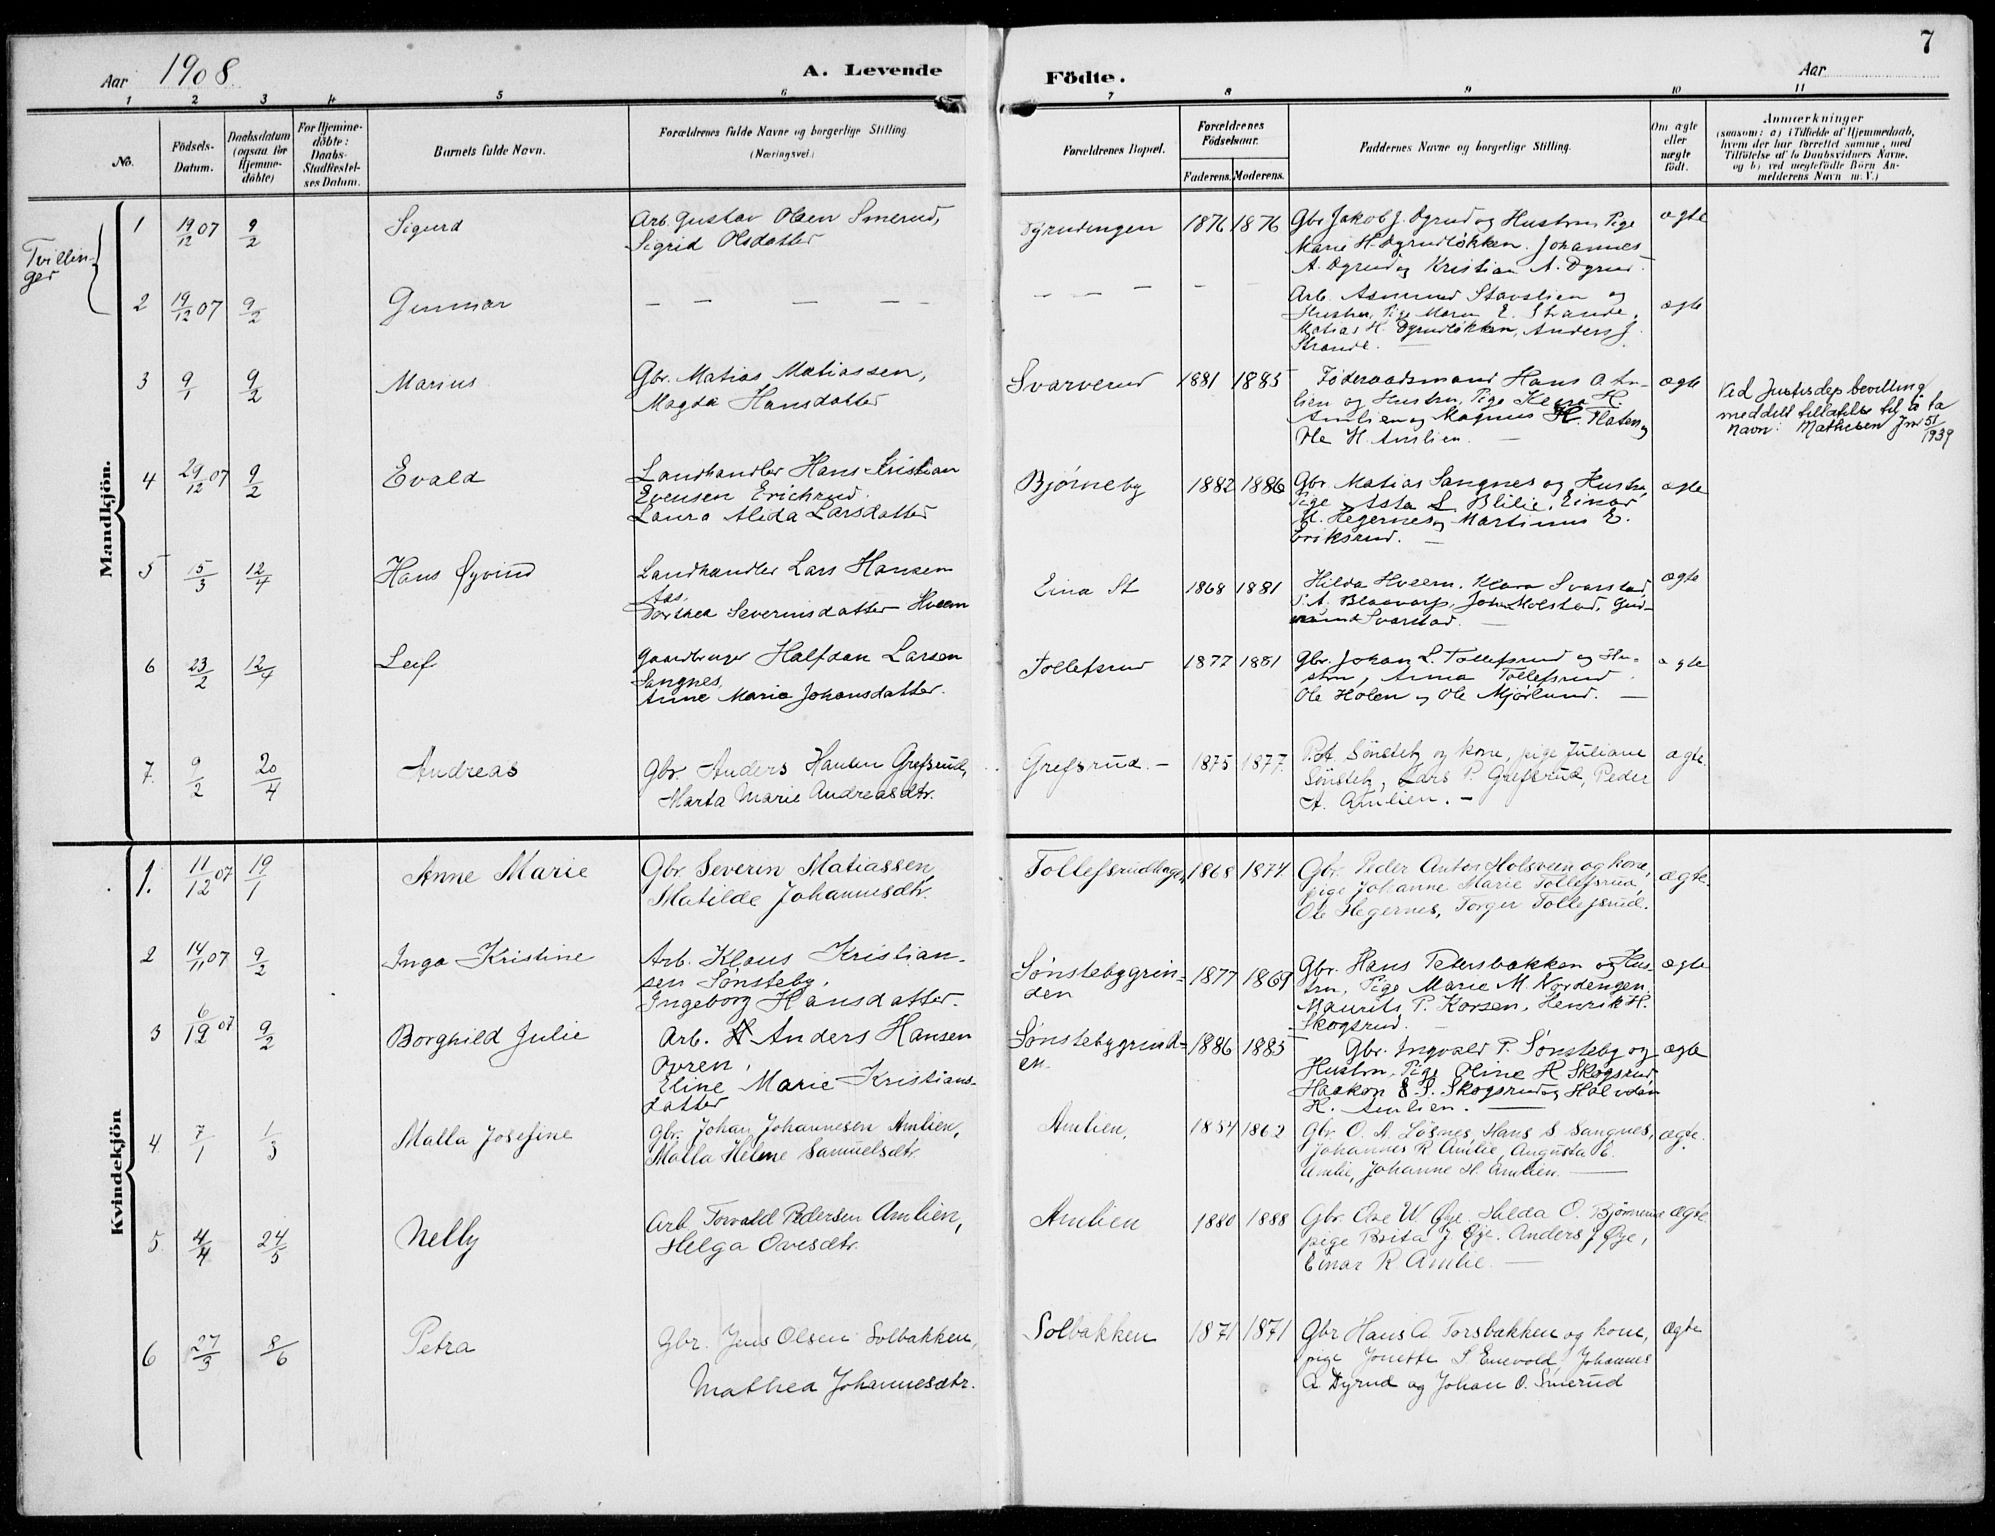 7
Aar 1908. A. Levende Födte. Aar
1 2 3 4 5 6 7 8 9 10 11
No. Födsels-Datum. Daabsdatum (ogsaa for Hjemme-döbte) For Hjemme-döbte: Daabs-Stadfæstel-ses Datum. Barnets fulde Navn. Forældrenes fulde Navne og borgerlige Stilling (Næringsvei.) Forældrenes Bopæl. Forældrenes Födselsaar. Faderens. Moderens. Faddernes Navne og borgerlige Stilling. Om ægte eller uægte födt. Anmærkninger (saasom: a) i Tilfælde af Hjemmedaab, hvem der har forrettet samme, med Tilföielse af to Daabsvidners Navne, og b) ved uægtefödte Börn An-melderens Navn m. V.)
Mandkjön.
Tvillin-
ger
1 19/12 07 9/2 Sigurd Arb. Gustav Olsen Smerud, Dyrudengen 1876 1876 Gbr. Jakob J. Dyrud og Hustru, Pige ægte
Sigrid Olsdatter Marie H. Dyrudløkken. Johannes
A. Dyrud og Kristian A. Dyrud.
2 19/12 07 9/2 Gunnar — — — — — — — — — — — Arb. Asmund Stavslien og ægte
Hustru, Pige Maren E. Strande,
Matias H. Dyrudløkken, Anders J.
Strande. —
3 9/1 9/2 Marius Gbr. Matias Matiassen, Svarverud 1881 1885 Føderaadsmand Hans O. Am- ægte Ved Justisdep bevilling
Magda Hansdatter lien og Hustru, Pige Klara H. meddelt tillatelse til å ta
Amlien og Magnus H. Flaten og navn: Mathisen Jnr 51/1939
Ole H. Amlien. —
4 29/12 07 9/2 Evald Landhandler Hans Kristian Bjørneby 1882 1886 Gbr. Matias Sangnes og Hustru, ægte
Evensen Erichrud. Pige Asta L. Blilie, Einar
Laura Alida Larsdatter M. Hegernes og Martinus E.
Eriksrud. —
5 15/3 12/4 Hans Øyvind Landhandler Lars Hansen Eina St 1868 1881 Hilda Hveem, Klara Svarstad, ægte
Aas, P. A. Blaavarp, Johan Molstad, Gud-
Dorthea Severinsdatter Hveem mund Svarstad. —
6 23/2 12/4 Leif Gaardbruger Halfdan Larsen Tollefsrud 1877 1881 Gbr. Johan L. Tollefsrud og Hu- ægte
Sangnes, stru, Anna Tollefsrud
Anne Marie Johansdatter. Ole Holen og Ole Mjørlund. —
7. 9/2 20/4 Andreas Gbr. Anders Hansen Grefsrud, Grefsrud. — 1875 1877. P. A. Sønsteby og kone, pige Juliane ægte.
Marta Marie Andreasdtr. Sønsteby, Lars P. Grefsrud, Peder
A. Amlien. —
Kvindekjön
1. 11/12 07 19/1 Anne Marie Gbr. Severin Matiassen, Tollefsrudhagen, 1868 1874 Gbr. Peder Anton Holsveen og kone, ægte.
Matilde Johannesdtr. pige Johanne Marie Tollefsrud,
Ole Hegernes, Torger Tollefsrud.
2 14/11 07 9/2 Inga Kristine Arb. Klaus Kristian- Sønstebygrin- 1877 1869 Gbr. Hans Petersbakken og Hus- ægte
sen Sønsteby, den tru, Pige Marie M. Nordengen,
Ingeborg Hansdatter. Maurits P. Korsen, Henrik H.
Skogsrud. —
3 6/12 07 9/2 Borghild Julie Arb. Anders Hansen Sønstebygrind- 1886 1885 Gbr. Ingvald P. Sønsteby og ægte
Øvren, en. Hustru, Pige Oline H. Skogsrud
Eline Marie Kristians- Haakon S. Skogsrud og Halvdan
datter H. Amlien. —
4 7/1 1/3 Malla Josefine Gbr. Johan Johannesen Amlien, Amlien, 1854 1862 Gbr. O. A. Løsnes, Hans S Sangnes, ægte.
Malla Helene Samuelsdtr. Johannes R Amlie, Augusta E.
Amlie, Johanne H. Amlien. —
5 4/4 24/5 Nelly Arb. Torvald Pedersen Amlien, Amlien 1880 1888 Gbr. Ove W. Øye, Hilda O. Bjørnerud ægte.
Helga Ovesdtr. pige Brita J Øye. Anders J Øye,
Einar R Amlie. —
6 27/3 8/6 Petra Gbr. Jens Olsen Solbakken, Solbakken 1871 1871 Gbr Hans A. Torsbakken og kone, Ægte
Mathea Johannesdtr. pige Jonette S. Enevold, Johannes
A. Dyrud og Johan O. Smerud